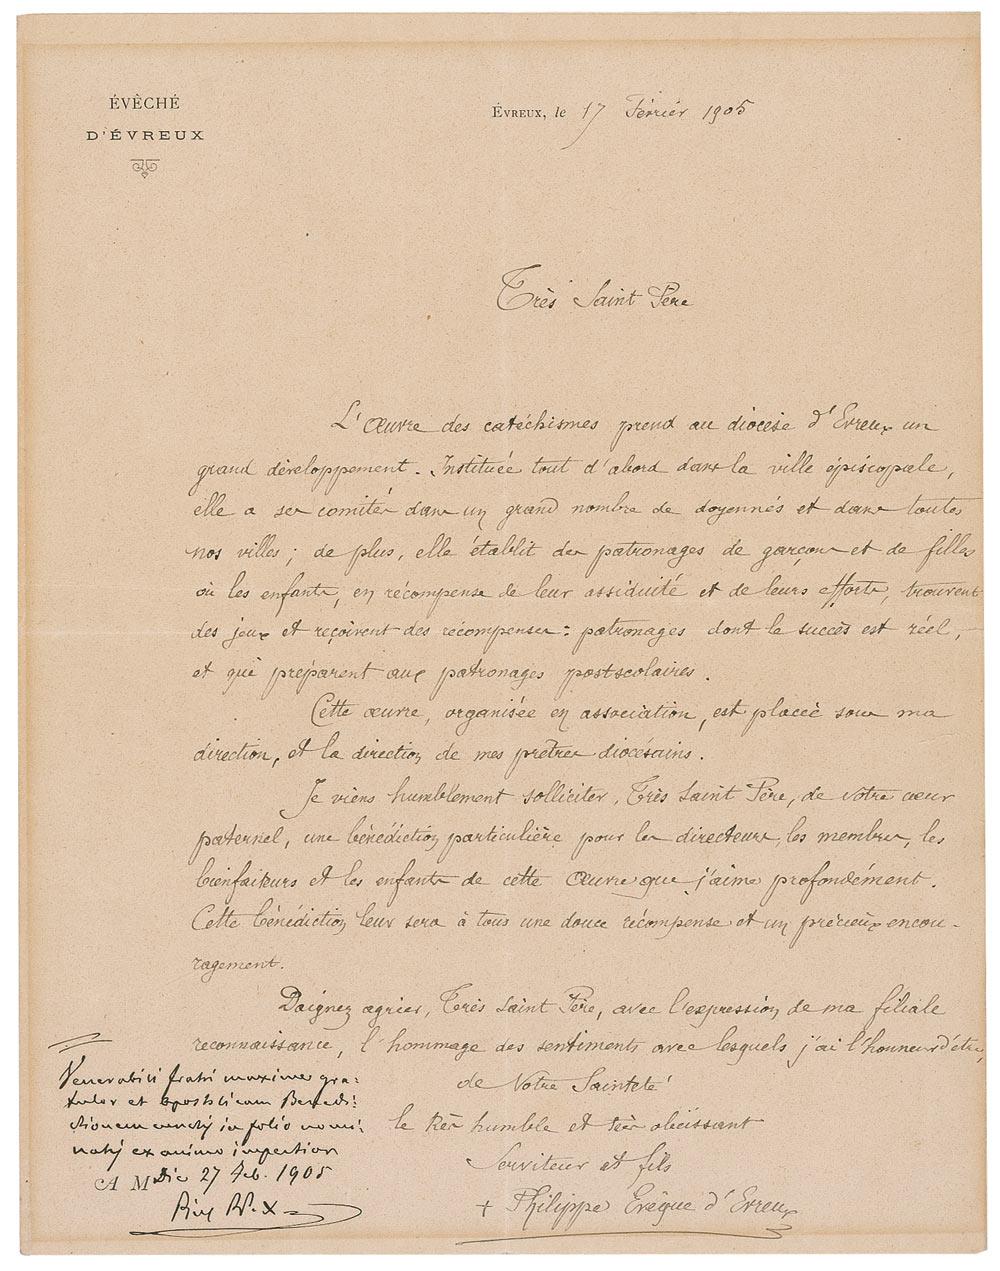 ÉVÊCHÉ
D'ÉVREUX
ÉVREUX, le 17 Février 1905
Très Saint Père
L'Œuvre des catéchismes prend au diocèse d'Evreux un
grand développement. Instituée tout d'abord dans la ville épiscopale,
elle a ses comités dans un grand nombre de doyennés et dans toutes
nos villes ; de plus, elle établit des patronages de garçons et de filles
où les enfants, en récompense de leur assiduité et de leurs efforts, trouvent
des jeux et reçoivent des récompenses : patronages dont le succès est réel,
et qui préparent aux patronages postscolaires.
Cette œuvre, organisée en association, est placée sous ma
direction, et la direction de mes prêtres diocésains.
Je viens humblement solliciter, Très Saint Père, de votre cœur
paternel, une bénédiction particulière pour les directeurs, les membres, les
bienfaiteurs et les enfants de cette Œuvre que j'aime profondément.
Cette bénédiction leur sera à tous une douce récompense et un précieux encou-
ragement.
Daignez agréer, Très Saint Père, avec l'expression de ma filiale
reconnaissance, l'hommage des sentiments avec lesquels j'ai l'honneur d'être,
de Votre Sainteté
le très humble et très obéissant
Serviteur et fils
+ Philippe Evêque d'Evreux
Venerabili fratri maxime gra-
tulor et apostolicam Benedi-
ctionem in folio nomi-
natis ex animo impertior
A M
Die 27 Feb. 1905
Pius PP. X